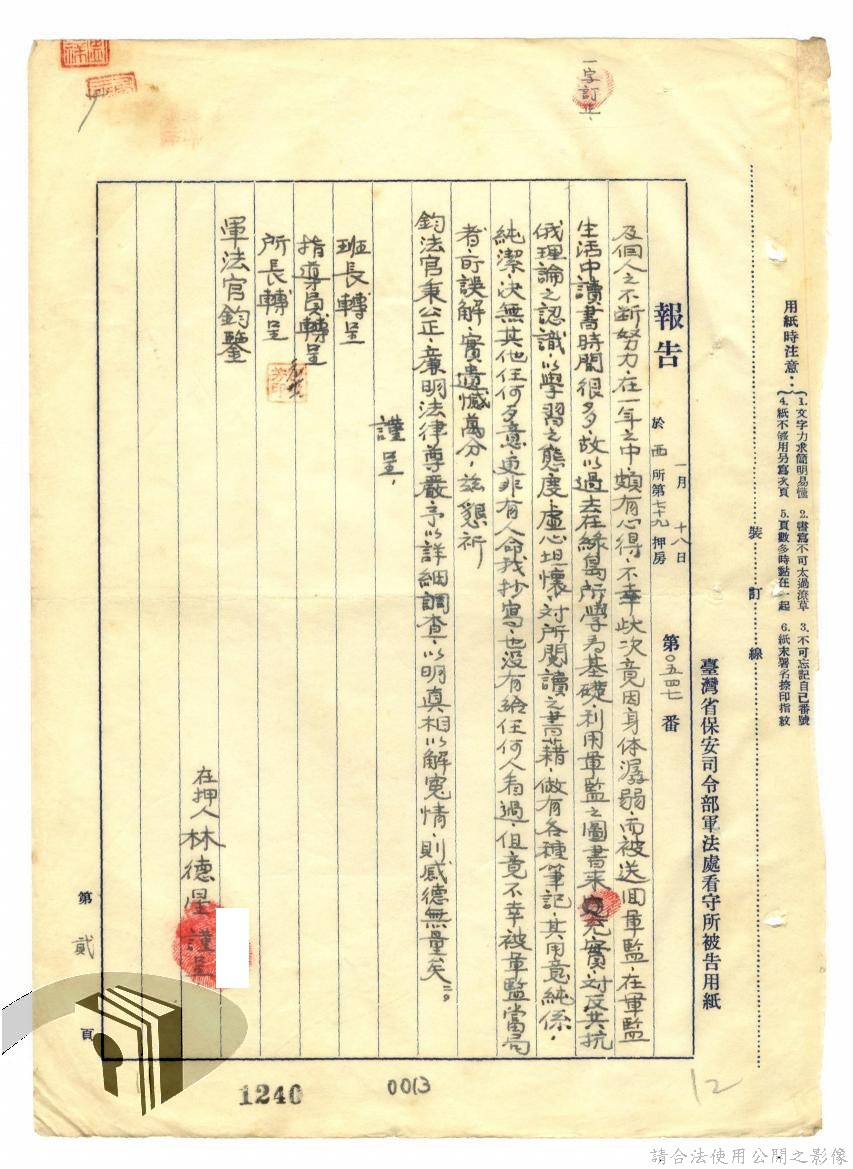 用紙時注意：
1. 文字力求簡明易懂
2. 書寫不可太過潦草
3. 不可忘記自己番號
4. 紙不够用另寫次頁
5. 頁數多時黏在一起
6. 紙末署名捺印指紋
裝訂線
臺灣省保安司令部軍法處看守所被告用紙
一字訂正、
報告
一月十八日
於西所第七十九押房
第〇五四七番
及個人之不断努力，在一年之中，頗有心得，不幸此次竟因身体潺弱，而被送囬軍監，在軍監
生活中讀書時間很多，故以過去在綠島所學為基礎，利用軍監之圖書來充實，对反共抗
俄理論之認識，以學習之態度，虛心坦懷，对所閱讀之書藉，做有各種筆記，其用意純係，
純潔，决無其他任何歹意，更非有人命我抄寫，也没有給任何人看過，但竟不幸被軍監當局
者所誤解，實遺憾萬分，茲懇祈
鈞法官秉公正，亷明法律尊嚴，予以詳細調查，以明真相以解寃情，則感德無量矣。
謹呈，
班長轉呈
指導員轉呈
所長轉呈
軍法官鈞鑒
在押人 林德星 謹呈
第貳頁
1240
0013
12
請合法使用公開之影像